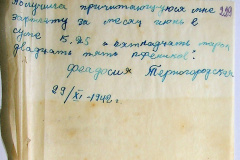 получила причитающуюся мне
зарплату за месяц июнь в
сумме 15.25
двадцать пять рфенигов.
Феодосия Терногородская
29/XI-1942г.